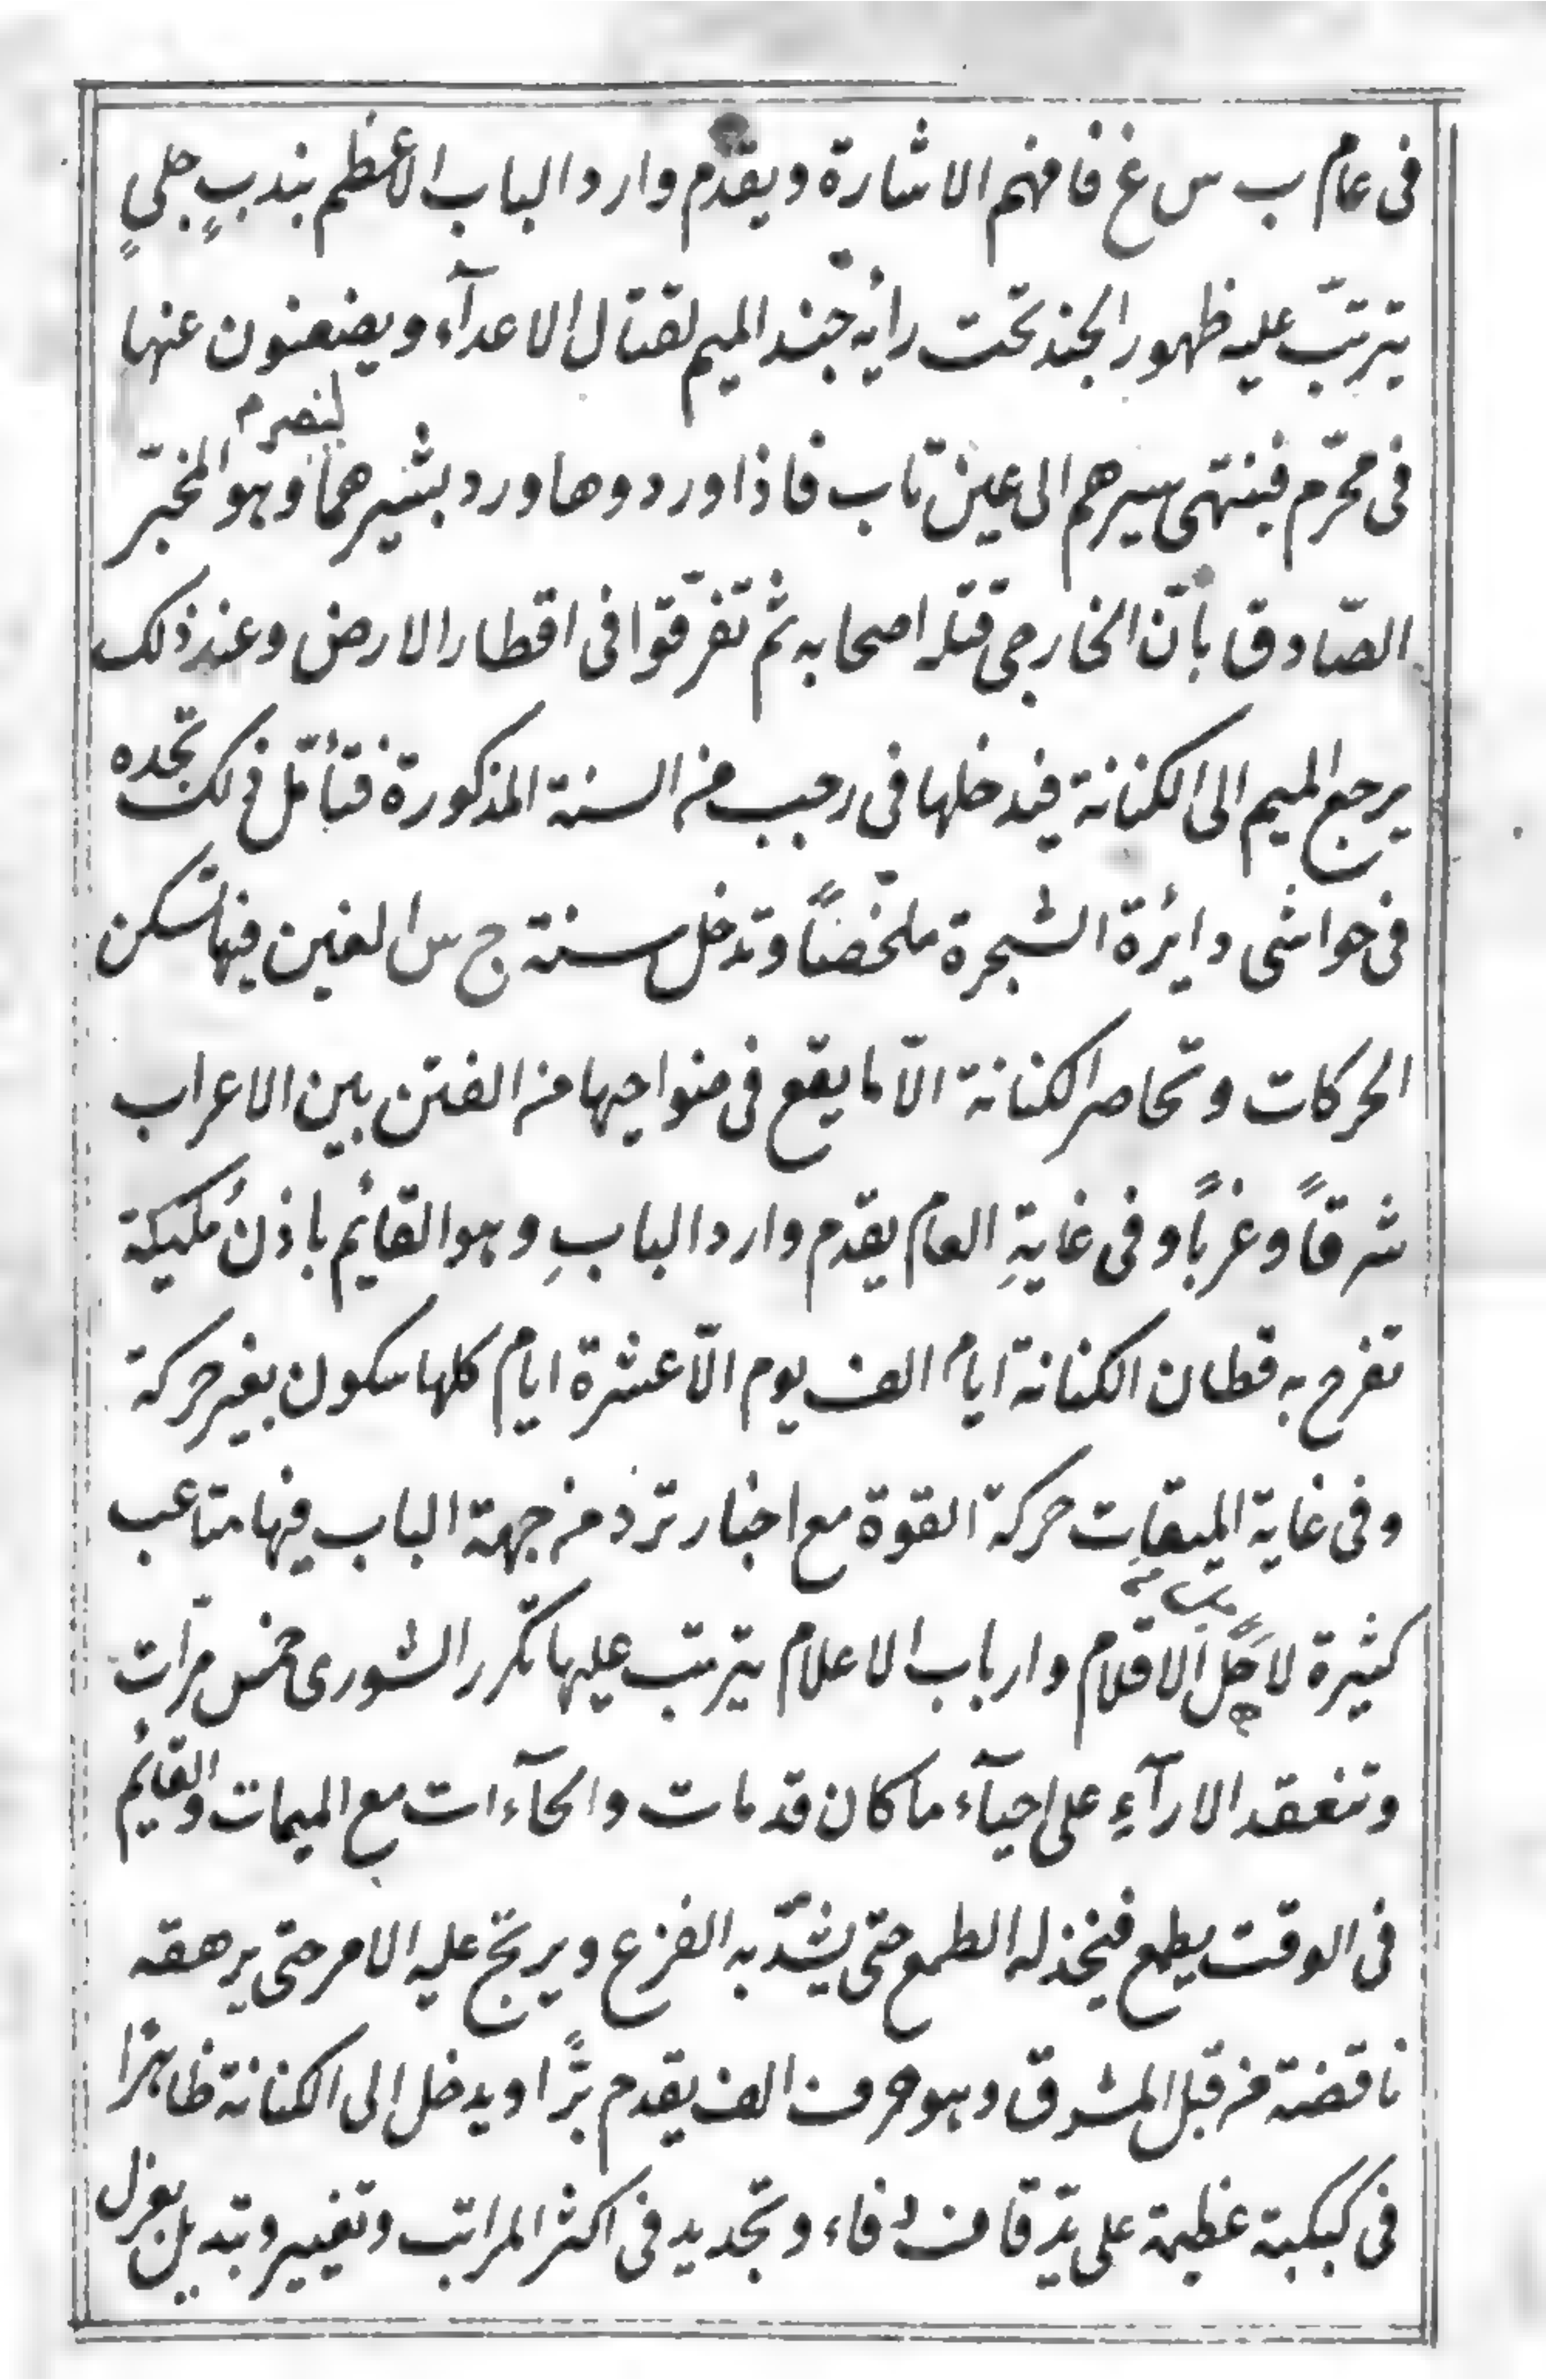 فى عام ب س غ فافهم الاشارة ويقدم وارد الباب الأعظم بندبٍ جلىٍ
يترتّب عليه ظهور الجند تحت رأية جند الميم لقتال الاعدآء ويضعنون عنها
فى محرّم فينتهى سيرهم الى عين تاب فاذا وردوها ورد بشيرهما وهو المخبّر
لينصرم
الصّادق بأنّ الخارجى قتله اصحابه ثم تفرّقوا فى اقطار الارض وعند ذلك
يرجع الميم الى الكنانة فيدخلها فى رجب من السنة المذكورة فتأمّل ذلك تجده
فى حواشى دايرة الشجرة ملخّصًا وتدخل سنة ج س الغين فيها تسكن
الحركات وتحاصر الكنانة الّا ما يقع فى ضواحيها من الفتن بين الاعراب
شرقاً وغرباً وفى غايةِ العام يقدم وارد البابِ وهو القائم باذن مليكة
تفرح به قطان الكنانة أيام الف يوم الّا عشرة ايام كلها سكون بغير حركة
وفى غاية الميقات حركة القوة مع اخبار ترد من جهة الباب فيها متاعب
كثيرة لاجل الاقلام وارباب الاعلام يترتب عليها تكرر الشورى خمس مرّات
وتنعقد الارآءِ على احيآء ما كان قد مات والحآءات مع الميمات والقائم
فى الوقت يطمع فيخذله الطمع حتى يشتدّ به الفزع ويرتجّ عليه الامر حتى يرهقه
ناقضة من قبل المشرق وهو حرف الف يقدم برًّا ويدخل إلى الكنانة ظاهرًا
فى كبكبة عظيمة على يد قاف وفاء وتجديد فى اكثر المراتب وتغيير وتبديل بعزل